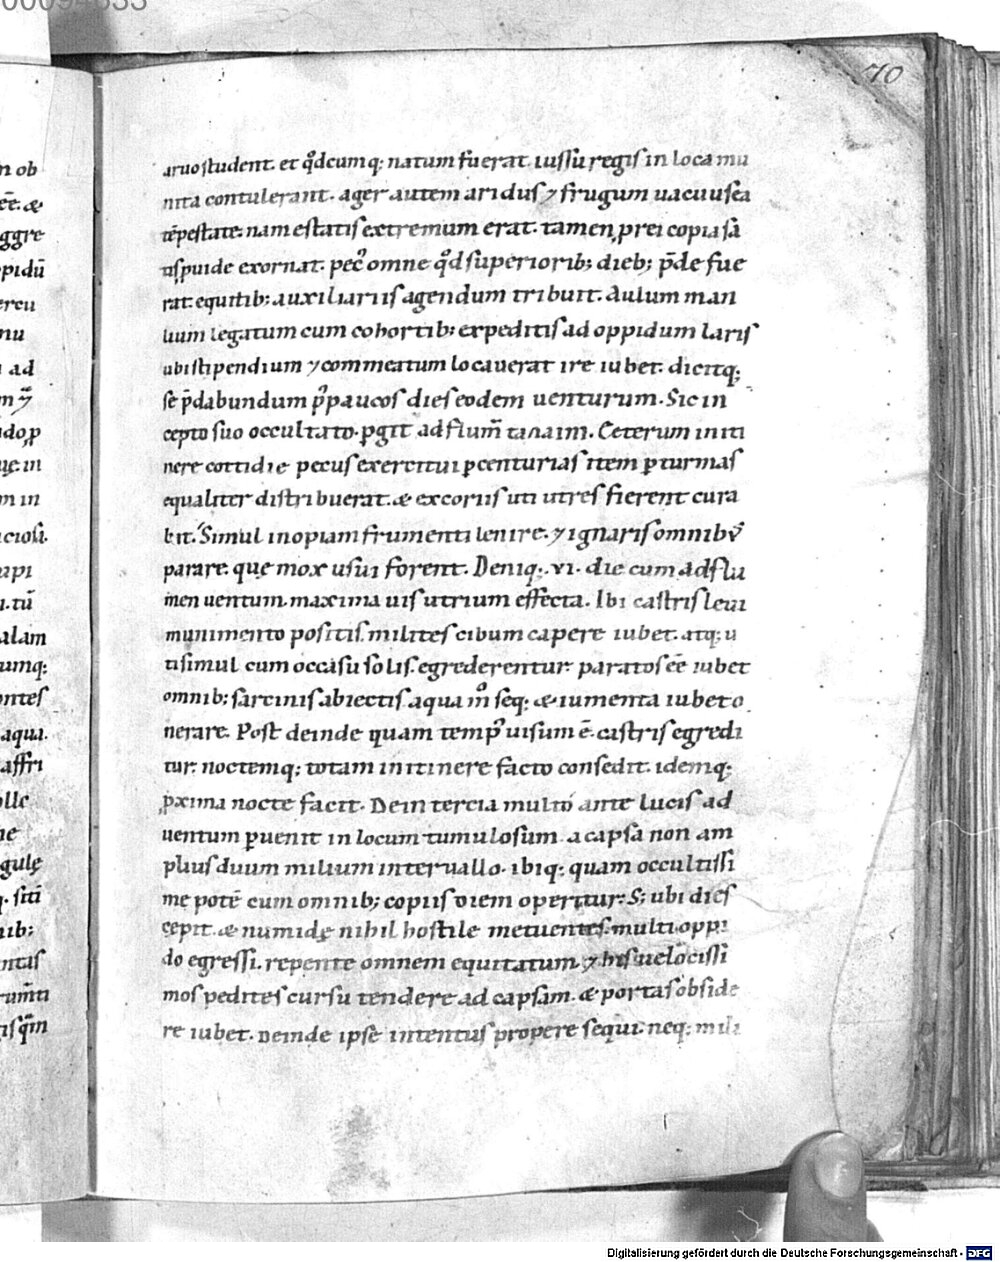 00094633
70
aruo student. et qd̊cumq; natum fuerat. iussu regis in loca mu
nita contulerant. ager autem aridus ⁊ frugum uacuus ea
tēpestate. nam estatis extremum erat. tamen ꝓ rei copia sa
tis puide exornat. pec᷒ omne qd̊ superiorib; dieb; p̄de fue
rat. equitib; auxiliariis agendum tribuit. Aulum man
lium legatum cum cohortib; expeditis ad oppidum laris
ubi stipendium ⁊ commeatum locauerat ire iubet. dicitq;
se p̄dabundum p᷒ paucos dies eodem uenturum. Sic in
cepto suo occultato. ꝑgit ad flum̄ tanaim. Ceterum in iti
nere cottidie pecus exercitui ꝑ centurias item ꝑ turmas
equaliter distribuerat. & ex coriis uti utres fierent cura
bit. Simul inopiam frumenti lenire. ⁊ ignaris omnib᷒
parare. quę mox usui forent. Deniq;. vi. die cum ad flu
men uentum. maxima uis utrium effecta. Ibi castris leui
munimento positis. milites cibum capere iubet. atq; u
ti simul cum occasu solis. egrederentur. paratos eē iubet
omnib; sarcinis abiectis. aqua m̊ seq; & iumenta iubet o
nerare. Post deinde quam temp᷒ uisum ē. castris egredi
tur. noctemq; totam in itinere facto consedit. idemq;
ꝓxima nocte facit. Dein tercia multo ante lucis ad
uentum ꝑuenit in locum tumulosum. a capsa non am
plius duum milium interuallo. ibiq; quam occultissi
me potē cum omnib; copiis diem operitur. S; ubi dies
cepit. & numidę nihil hostile metuentes. multi oppi
do egressi. repente omnem equitatum. ⁊ his uelocissi
mos pedites cursu tendere ad capsam. & portas obside
re iubet. Deinde ipse intentus propere sequi. neq; mili
Digitalisierung gefördert durch die Deutsche Forschungsgemeinschaft - DFG